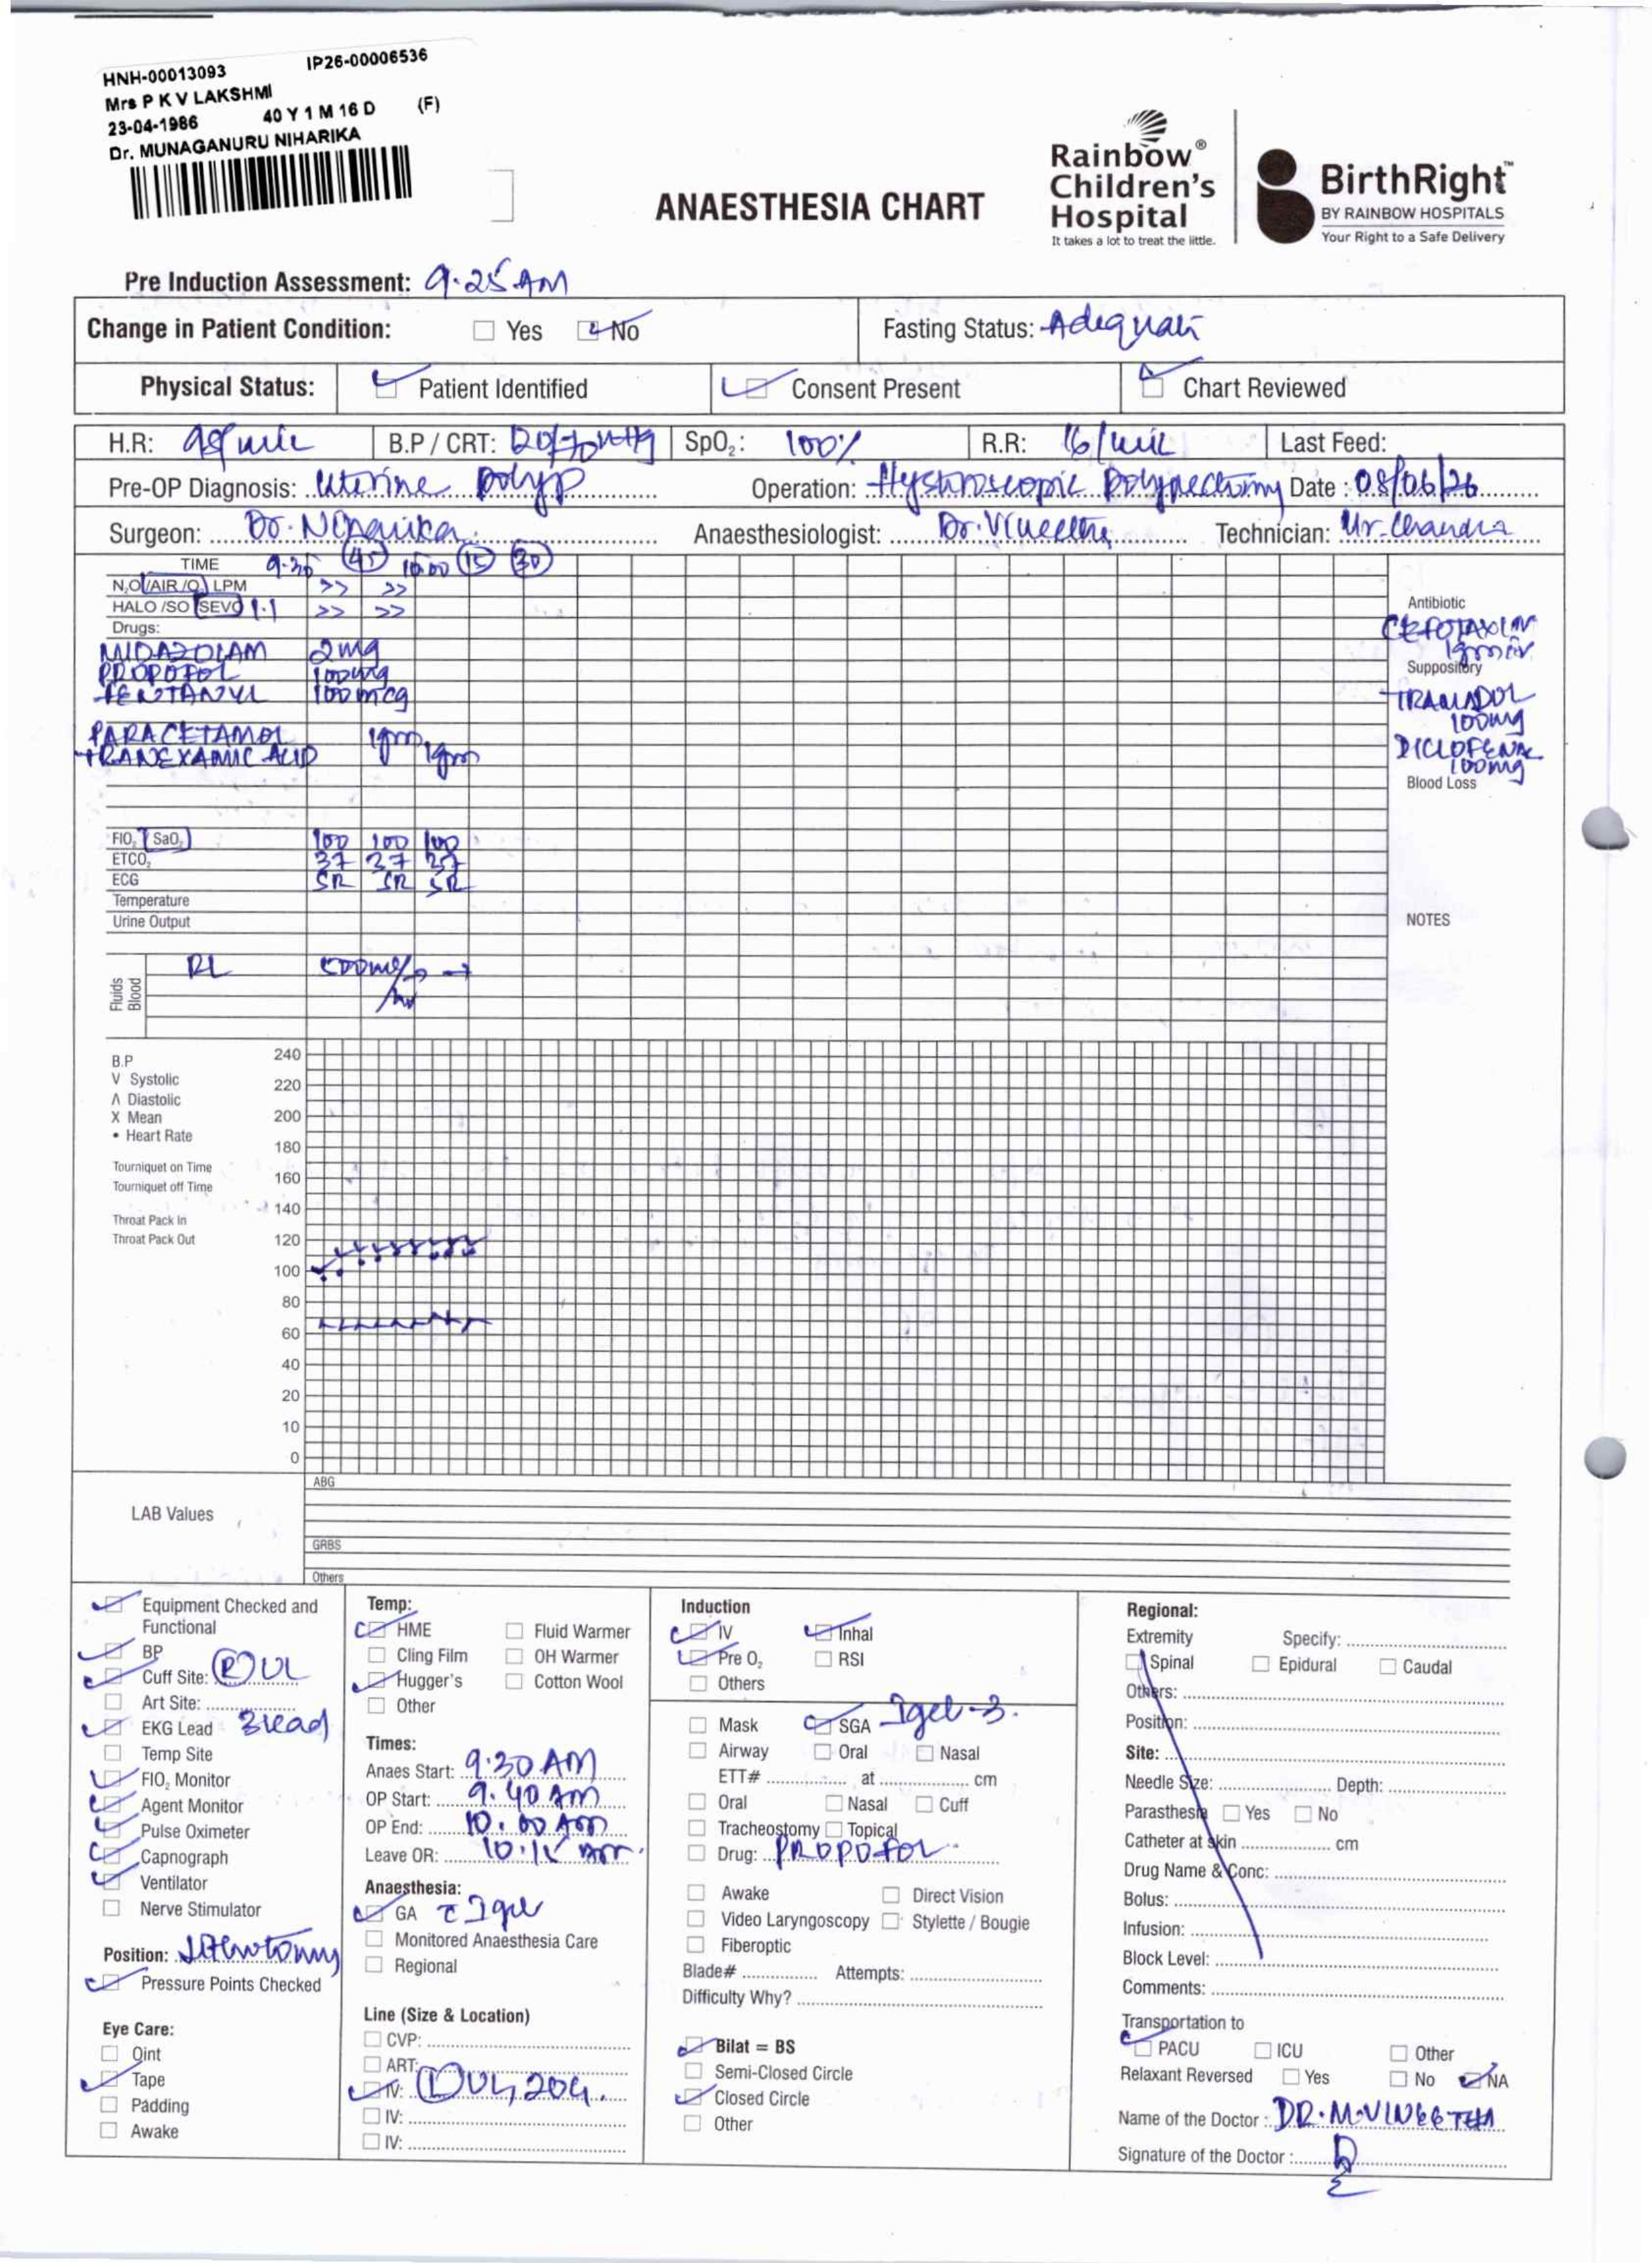 HNH-00013093 IP26-00006536
Mrs P K V LAKSHMI
23-04-1986 40 Y 1 M 16 D (F)
Dr. MUNAGANURU NIHARIKA
ANAESTHESIA CHART
Rainbow® Children's Hospital
It takes a lot to treat the little.
BirthRight™
BY RAINBOW HOSPITALS
Your Right to a Safe Delivery
Pre Induction Assessment: 9.25 AM
Change in Patient Condition: Yes No Fasting Status:
Physical Status: Patient Identified Consent Present Chart Reviewed
H.R: B.P / CRT: SpO₂: 100% R.R: 16/ Last Feed:
Pre-OP Diagnosis: Uterine polyp Operation: Date : 08/06/26
Surgeon: Dr. Anaesthesiologist: Dr. Technician: Mr.
TIME 45 10.00 15 30
N₂O/AIR/O₂ LPM >> >>
HALO /SO SEVO >> >>
Drugs:
MIDAZOLAM 2mg
PROPOFOL 100mg
FENTANYL 100mcg
PARACETAMOL 1gm
TRANEXAMIC ACID 1gm
Antibiotic
Suppository
TRAMADOL
100mg
DICLOFENAC
100mg
Blood Loss
FIO₂ SaO₂ 100 100 100
ETCO₂ 37 37
ECG SR SR SR
Temperature
Urine Output
NOTES
Fluids
Blood
RL
B.P
V Systolic
Λ Diastolic
X Mean
• Heart Rate
Tourniquet on Time
Tourniquet off Time
Throat Pack In
Throat Pack Out
240
220
200
180
160
140
120
100
80
60
40
20
10
0
LAB Values
ABG
GRBS
Others
Equipment Checked and
Functional
BP
Cuff Site: (R) UL
Art Site:
EKG Lead 3lead
Temp Site
FIO₂ Monitor
Agent Monitor
Pulse Oximeter
Capnograph
Ventilator
Nerve Stimulator
Position:
Pressure Points Checked
Eye Care:
Oint
Tape
Padding
Awake
Temp:
HME Fluid Warmer
Cling Film OH Warmer
Hugger's Cotton Wool
Other
Times:
Anaes Start: 9.30 AM
OP Start: 9.40 AM
OP End: 10.00 AM
Leave OR:
Anaesthesia:
GA
Monitored Anaesthesia Care
Regional
Line (Size & Location)
CVP:
ART:
IV: (L) UL, 20G.
IV:
IV:
Induction
IV Inhal
Pre O₂ RSI
Others
Mask SGA Igel-3.
Airway Oral Nasal
ETT# at cm
Oral Nasal Cuff
Tracheostomy Topical
Drug: PROPOFOL
Awake Direct Vision
Video Laryngoscopy Stylette / Bougie
Fiberoptic
Blade# Attempts:
Difficulty Why?
Bilat = BS
Semi-Closed Circle
Closed Circle
Other
Regional:
Extremity Specify:
Spinal Epidural Caudal
Others:
Position:
Site:
Needle Size: Depth:
Parasthesia Yes No
Catheter at skin cm
Drug Name & Conc:
Bolus:
Infusion:
Block Level:
Comments:
Transportation to
PACU ICU Other
Relaxant Reversed Yes No NA
Name of the Doctor : DR. M. VINEETHA
Signature of the Doctor :